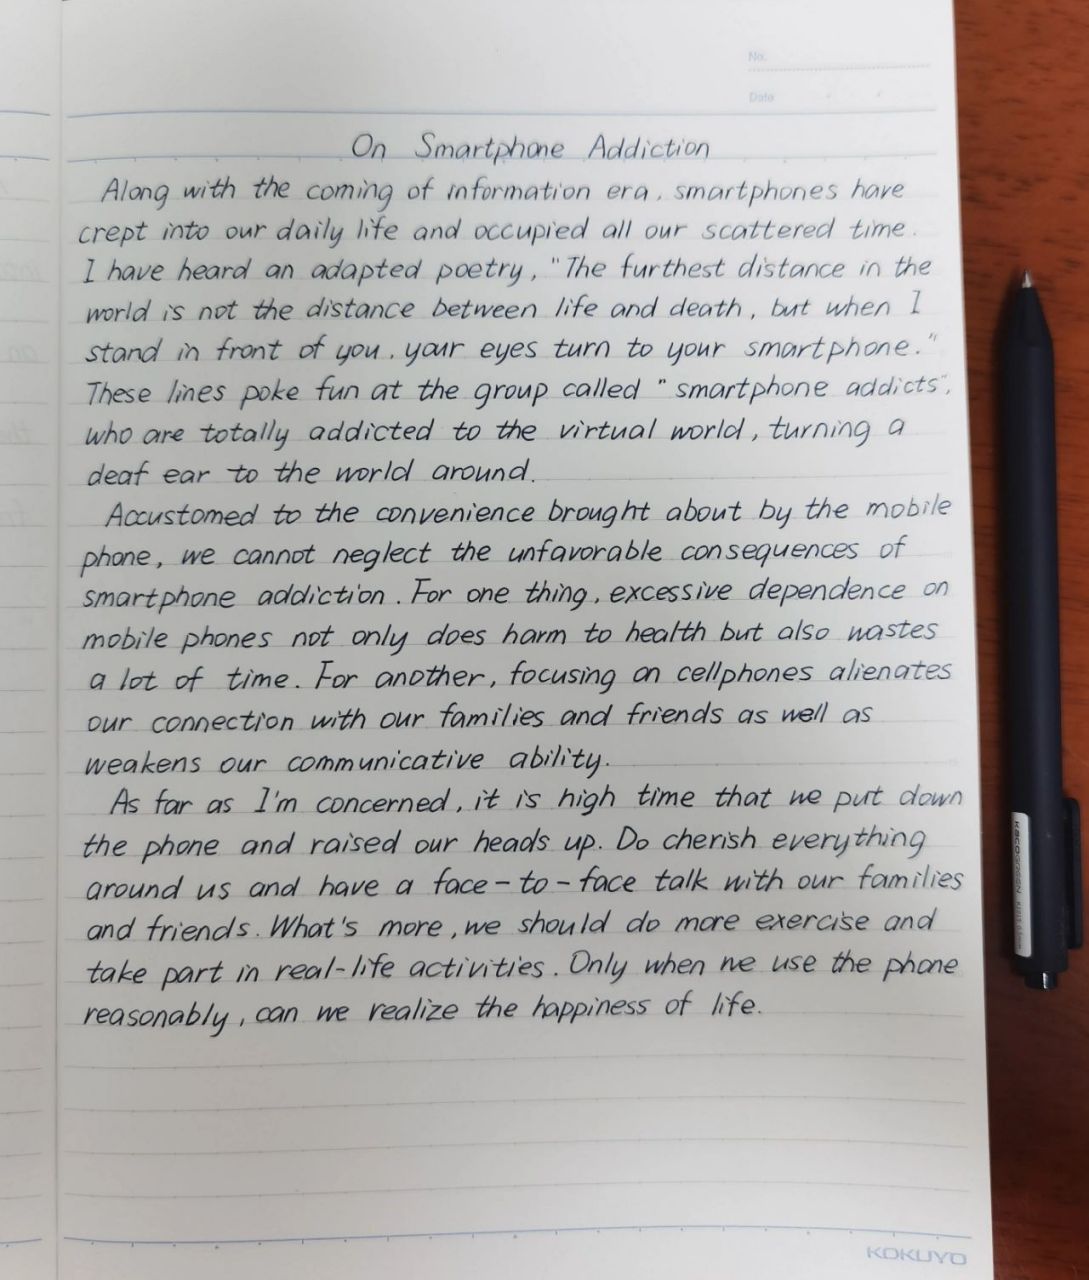 No.
Date
On Smartphone Addiction
Along with the coming of information era, smartphones have
crept into our daily life and occupied all our scattered time.
I have heard an adapted poetry, "The furthest distance in the
world is not the distance between life and death, but when I
stand in front of you, your eyes turn to your smartphone."
These lines poke fun at the group called "smartphone addicts",
who are totally addicted to the virtual world, turning a
deaf ear to the world around.
Accustomed to the convenience brought about by the mobile
phone, we cannot neglect the unfavorable consequences of
smartphone addiction. For one thing, excessive dependence on
mobile phones not only does harm to health but also wastes
a lot of time. For another, focusing on cellphones alienates
our connection with our families and friends as well as
weakens our communicative ability.
As far as I'm concerned, it is high time that we put down
the phone and raised our heads up. Do cherish everything
around us and have a face-to-face talk with our families
and friends. What's more, we should do more exercise and
take part in real-life activities. Only when we use the phone
reasonably, can we realize the happiness of life.
KOKUYO
KACOGREEN